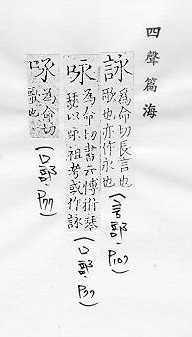 四聲篇海
詠 為命切長言也
歌也亦作永也
(言部.P107)
咏 為命切書云愽拊琴
瑟以咏祖考或作詠
(口部.P77)
𠲛 為命切
歌也
(口部.P77)